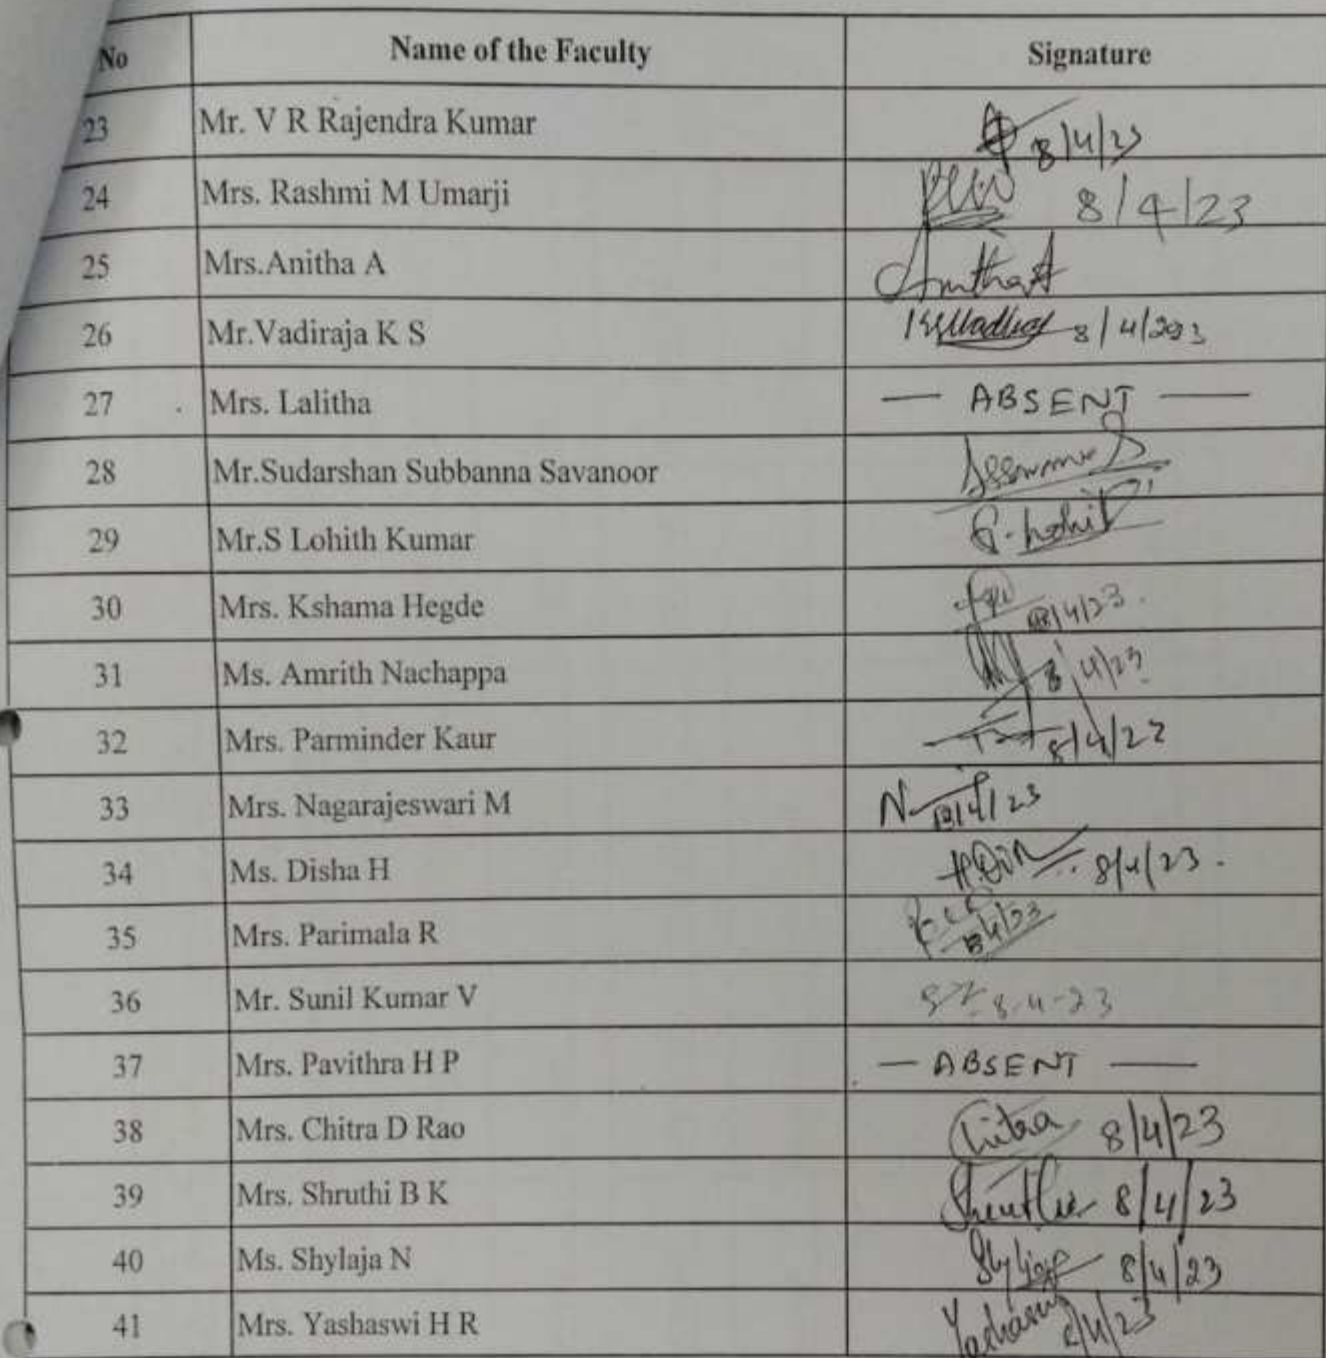 No Name of the Faculty Signature
23 Mr. V R Rajendra Kumar 8/4/23
24 Mrs. Rashmi M Umarji 8/4/23
25 Mrs.Anitha A AnithaA
26 Mr.Vadiraja K S 8/4/2023
27 Mrs. Lalitha — ABSENT —
28 Mr.Sudarshan Subbanna Savanoor
29 Mr.S Lohith Kumar
30 Mrs. Kshama Hegde 8/4/23.
31 Ms. Amrith Nachappa 8/4/23
32 Mrs. Parminder Kaur 8/4/22
33 Mrs. Nagarajeswari M /4/23
34 Ms. Disha H 8/4/23.
35 Mrs. Parimala R 8/4/23
36 Mr. Sunil Kumar V 8-4-23
37 Mrs. Pavithra H P — ABSENT —
38 Mrs. Chitra D Rao Chitra 8/4/23
39 Mrs. Shruthi B K Shruthi 8/4/23
40 Ms. Shylaja N 8/4/23
41 Mrs. Yashaswi H R 8/4/23